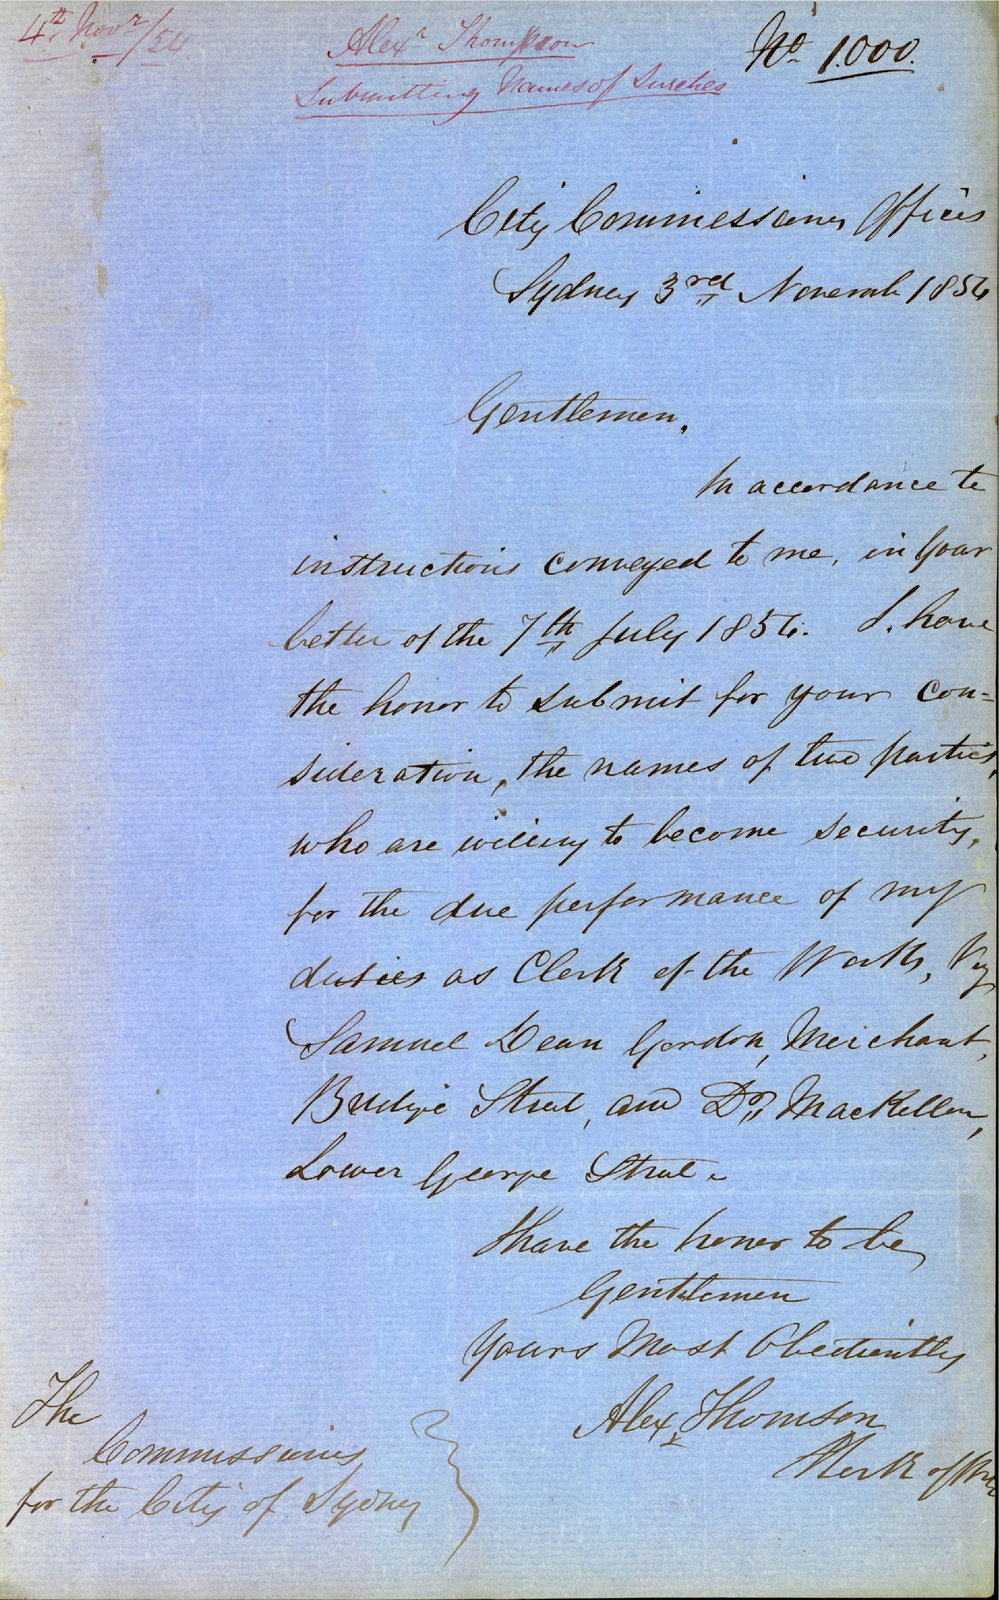 4th Novr/54
Alexr Thompson
Submitting Names of Sureties
No 1.000.
City Commissioners Offices
Sydney 3rd Novemb 1854
Gentlemen,
In accordance to
instructions conveyed to me, in your
letter of the 7th July 1854. I have
the honor to submit for your con-
sideration, the names of two parties,
who are willing to become security,
for the due performance of my
duties as Clerk of the Works, Viz
Samuel Dean Gordon, Merchant,
Bridge Street, and Dr, MacKellar,
Lower George Street.
I have the honor to be
Gentlemen
Yours Most Obediently
Alexr Thomson
Clerk of
The
Commissioners
for the City of Sydney